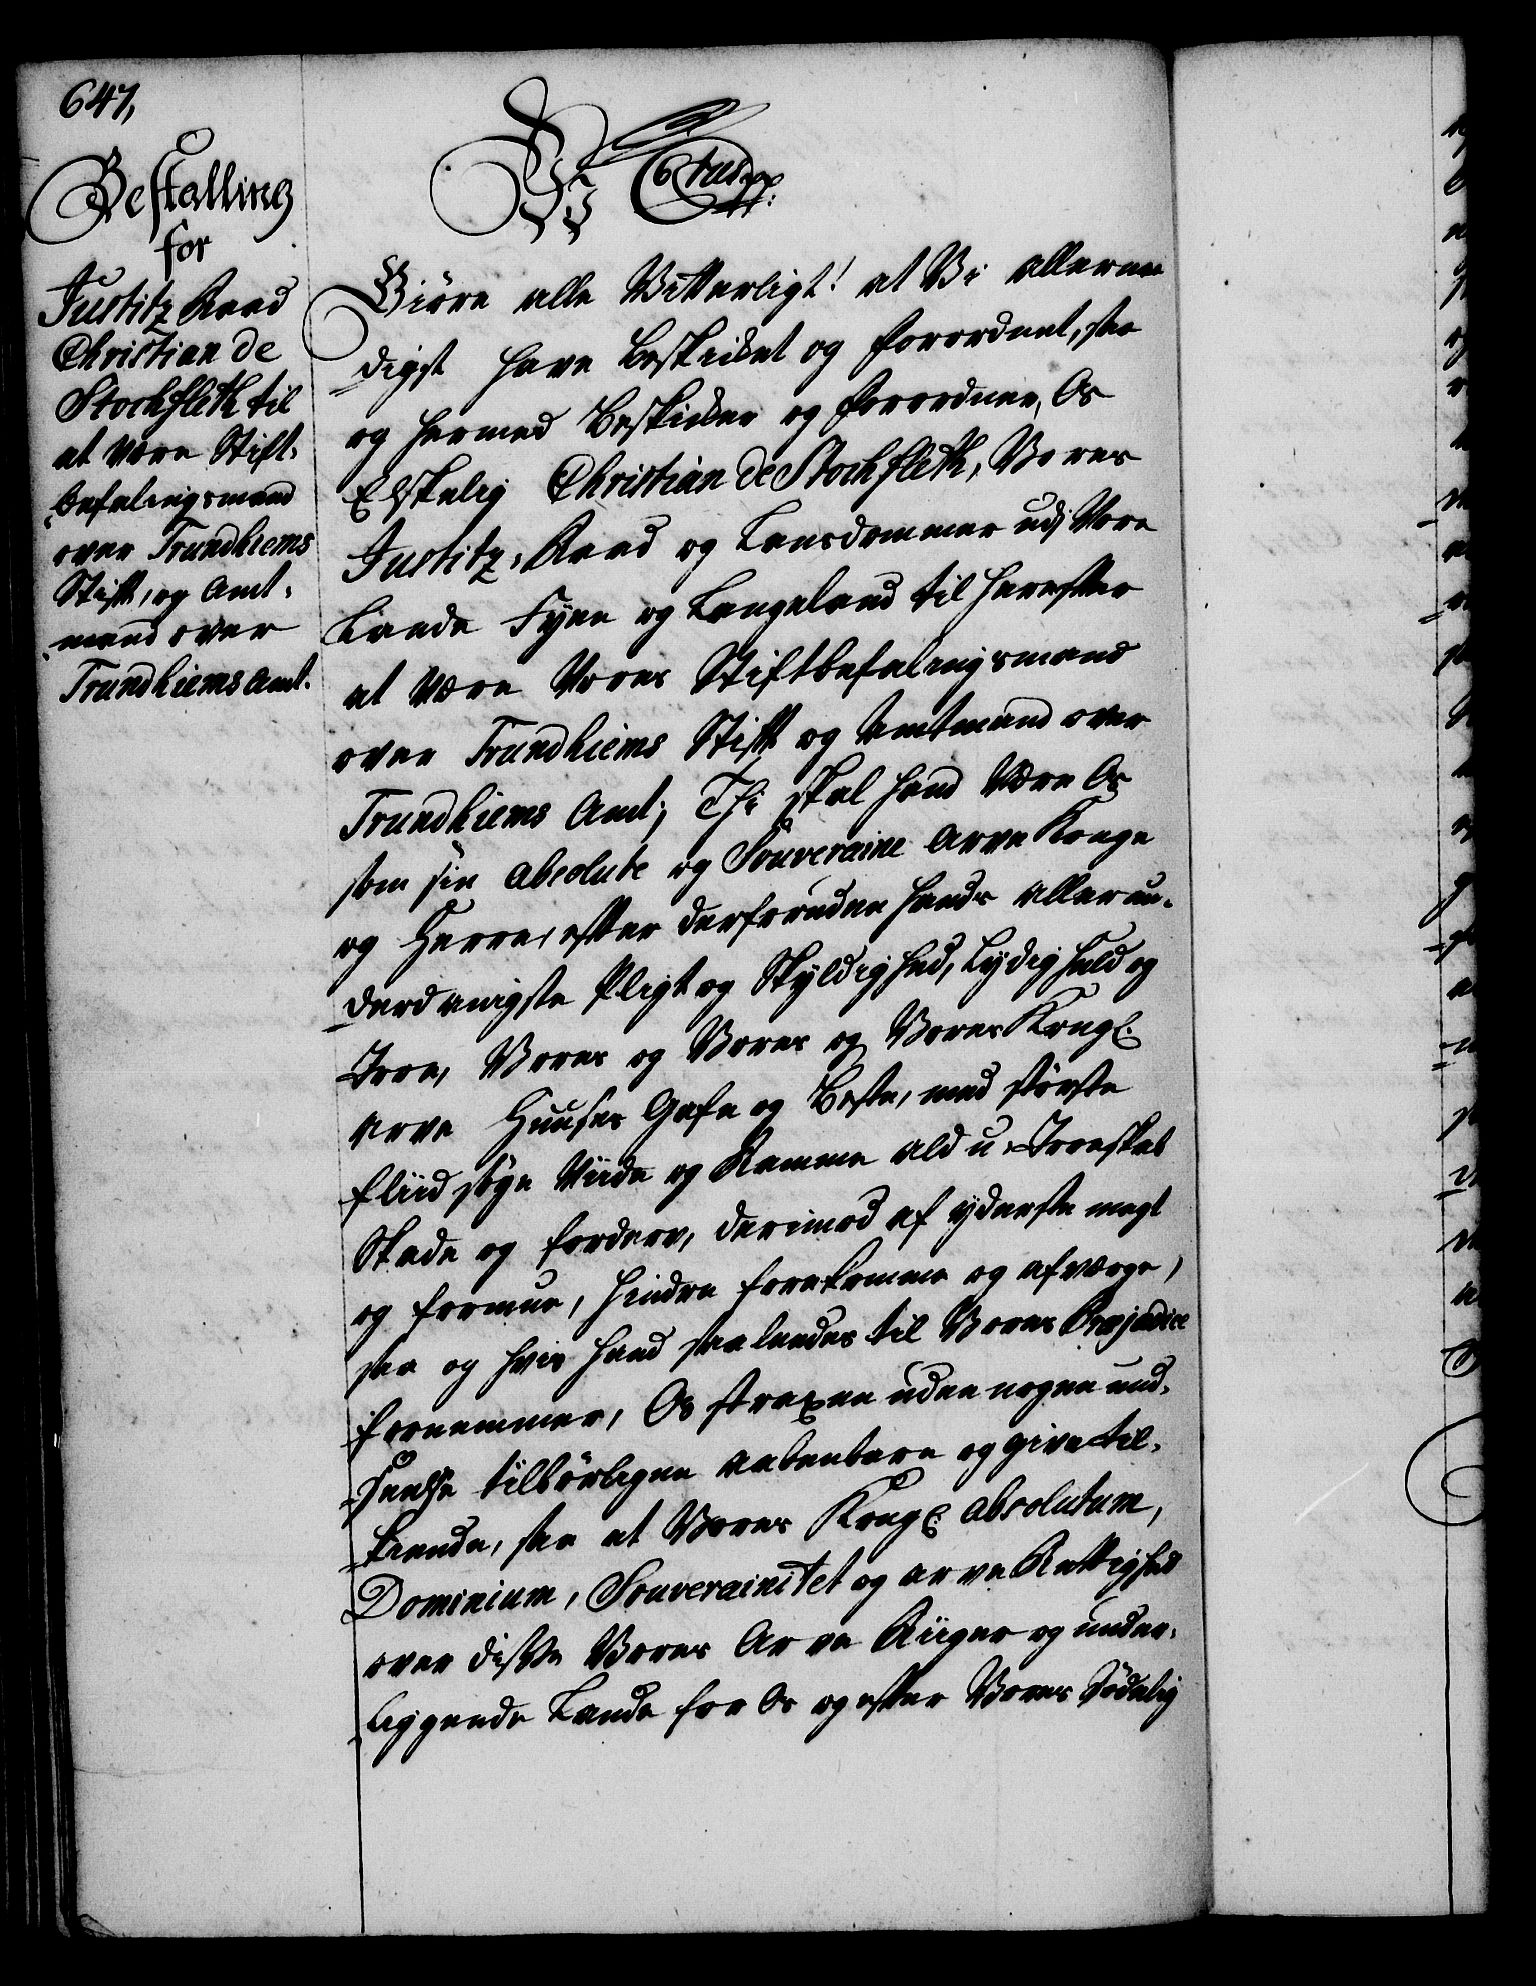 647,
Bestalling
for
Justitz Raad
Christian de
Stochfleth til
at være Stift-
befalingsmand
over Trundhiems
Stift, og Amt-
mand over
Trundhiems Amt.
Vi
Giöre alle Vitterligt! at Vi allernaa-
digst have beskicket og forordnet, saa
og hermed beskicker og forordner, Os
Elskelig Christian de Stochfleth, Vores
Justitz-Raad og Lansdommer udj Vore
Lande Fyen og Langeland til herefter
at være Vores Stiftbefalingsmand
over Trundhiems Stift og Amtmand over
Trundhiems Amt; Thi skal hand være Os
som sin absolute og Souveraine Arve Konge
og Herre, efter derforuden hands allerun-
derdanigste Pligt og Skyldighed, Lydig huld og
Troe, Vores og Vores og Vores Kongl.
Arve Huuses Gafn og Beste, med störste
fliid söge Viide og Ramme ald u-Troeskab
Skade og forderv, derimod af yderste magt
og formue, hindre forekomme og afværge,
saa og hvis hand saaledes til Vores Præjudice
fornemmer, Os straxen uden nogen und-
seelse tilbörligen aabenbare og give til-
kiende, saa at Vores Kongl. absolutum,
Dominium, Souverainitet og arve Rettighed
over disse Vores Arve Riiger og under-
liggende Lande for Os og efter Vores Södelig